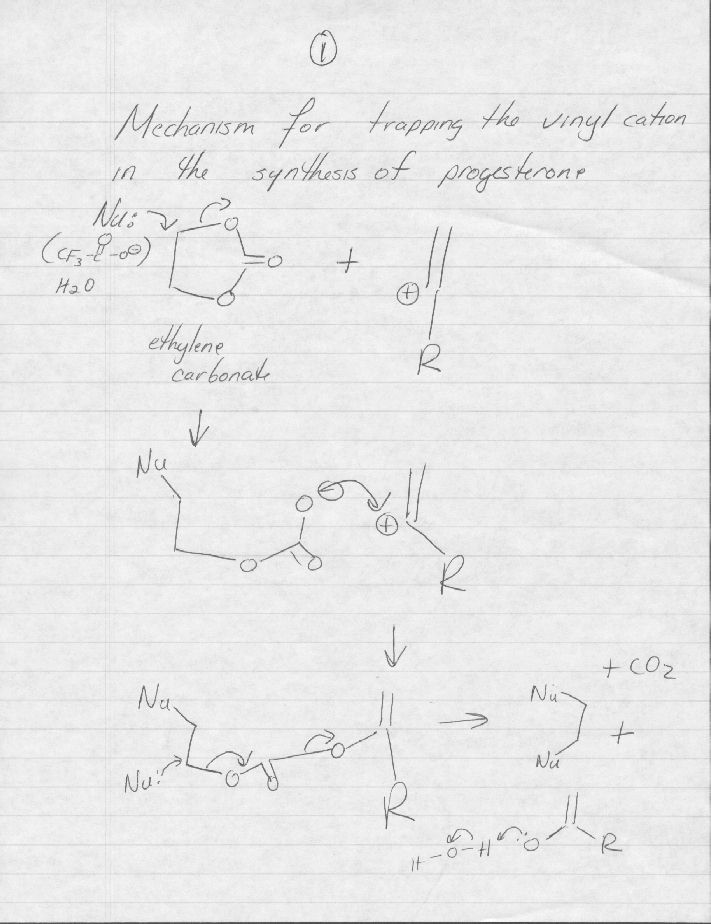 1
Mechanism for trapping the vinyl cation
in the synthesis of progesterone
Nu:
O
(CF3-C-O⊖)
O
O
=O
+
⊕
H2O
O
R
ethylene
carbonate
Nu
O ⊖
⊕
O
O
R
+ CO2
Nu
Nu
+
O
Nu:
O
O
Nu
R
H-O-H
:O
R